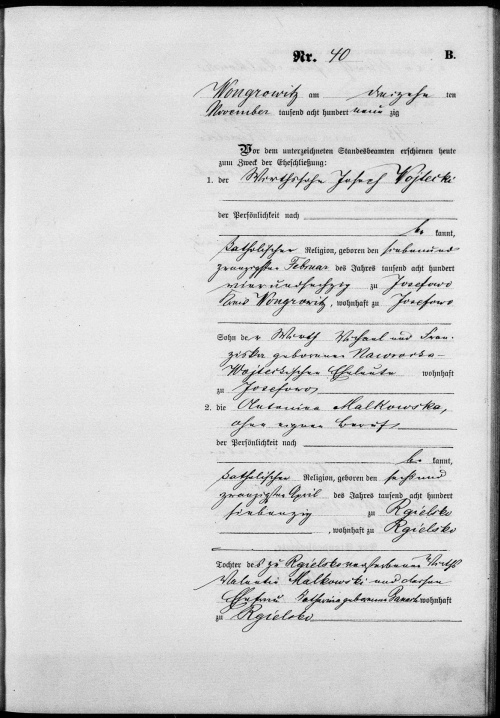 Nr. 40 B.
Wongrowitz am dreizehn ten
November tausend acht hundert neun zig
Vor dem unterzeichneten Standesbeamten erschienen heute
zum Zweck der Eheschließung:
1. der Wirthssohn Joseph Wojtecki
der Persönlichkeit nach
be kannt,
katholischer Religion, geboren den siebenund
zwanzigsten Februar des Jahres tausend acht hundert
vierundsechzig zu Josefowo
Kreis Wongrowitz, wohnhaft zu Josefowo
Sohn der Wirth Michael und Fran-
ziska geborenen Nawrocka-
Wojteckischen Eheleute wohnhaft
zu Josefowo
2. die Antonina Malkowska,
ohne eignen Beruf
der Persönlichkeit nach
be kannt,
katholischer Religion, geboren den sechsund
zwanzigsten April des Jahres tausend acht hundert
siebenzig zu Rgielsko
, wohnhaft zu Rgielsko
Tochter des zu Rgielsko verstorbenen Wirths
Valentin Malkowski und dessen
Ehefrau Katharina geborenen wohnhaft
zu Rgielsko